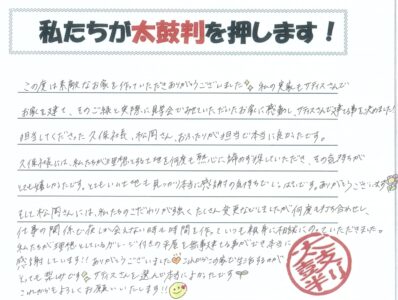 私たちが太鼓判を押します！
この度は素敵なお家を作っていただきありがとうございました 私の実家もサティスさんで
お家を建て、そのご縁と実際に見学会でお世話いただいたお家に感動し、サティスさんで建てる事を決めました！
担当してくださった久保社長、松岡さん、おふたりが担当で本当に良かったです。
久保社長には、私たちが理想とする土地を何度も熱心に探していただき、その気持ちが
とても嬉しかったです。とてもいい土地も見つかり本当に感謝の気持ちでいっぱいです。ありがとうございます
そして松岡さんには、私たちのこだわりが強くたくさん変更などしましたが何度も打ち合わせし、
仕事の関係で夜しか会えない時も時間を作っていつも親身に相談にのっていただきました。
私たちが理想としているガレージ付きの平屋を無事建てる事ができ本当に
感謝しています！ありがとうございました これからこの家で生活するのが
とっても楽しみです サティスさんを選んで本当によかったです
これからもよろしくお願いいたします!!
太鼓判